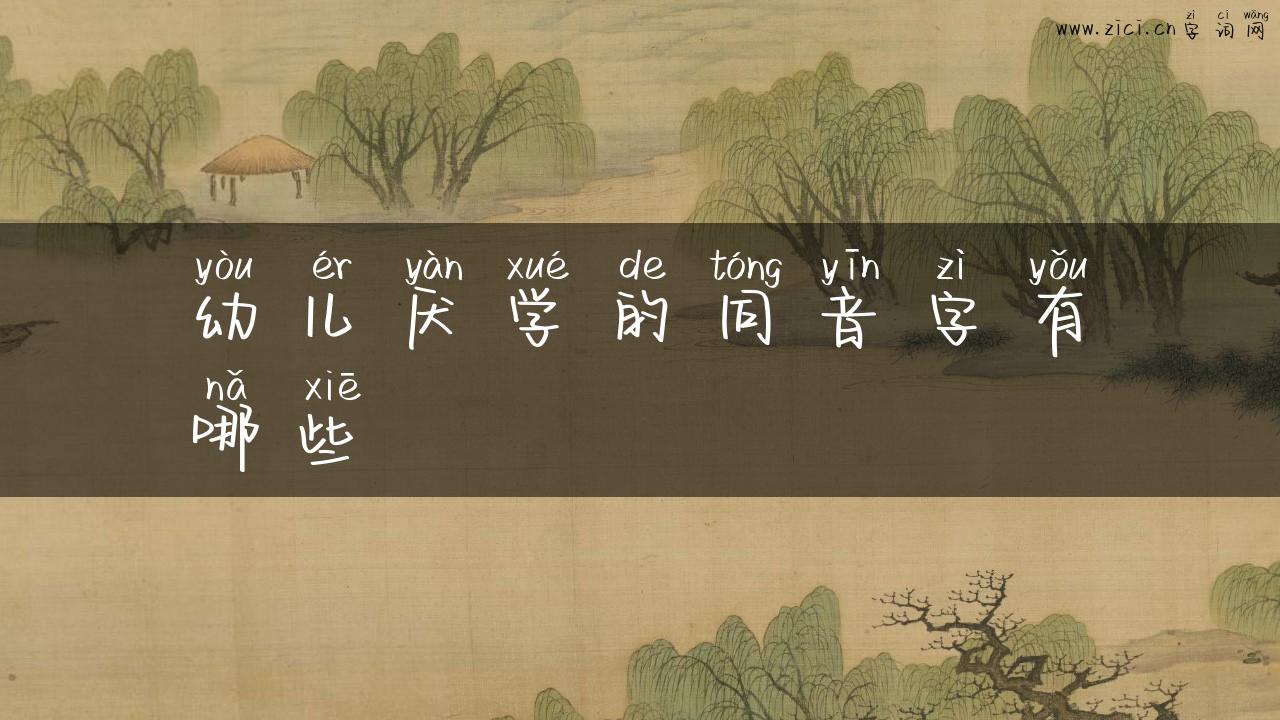 zì cí wǎng
www.zici.cn 字 词 网
yòu ér yàn xué de tóng yīn zì yǒu
幼 儿 厌 学 的 同 音 字 有
nǎ xiē
哪 些